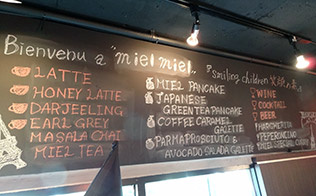 Bienvenu a "miel miel"
LATTE
HONEY LATTE
DARJEELING
EARL GREY
MASALA CHAI
MIEL TEA
Smiling children
MIEL PANCAKE
JAPANESE
GREEN TEA PANCAKE
COFFEE CARAMEL
GALETTE
PARMA PROSCIUTO &
AVOCADO SALADA GALETTE
WINE
COCKTAIL
BEER
PEPERONCINO